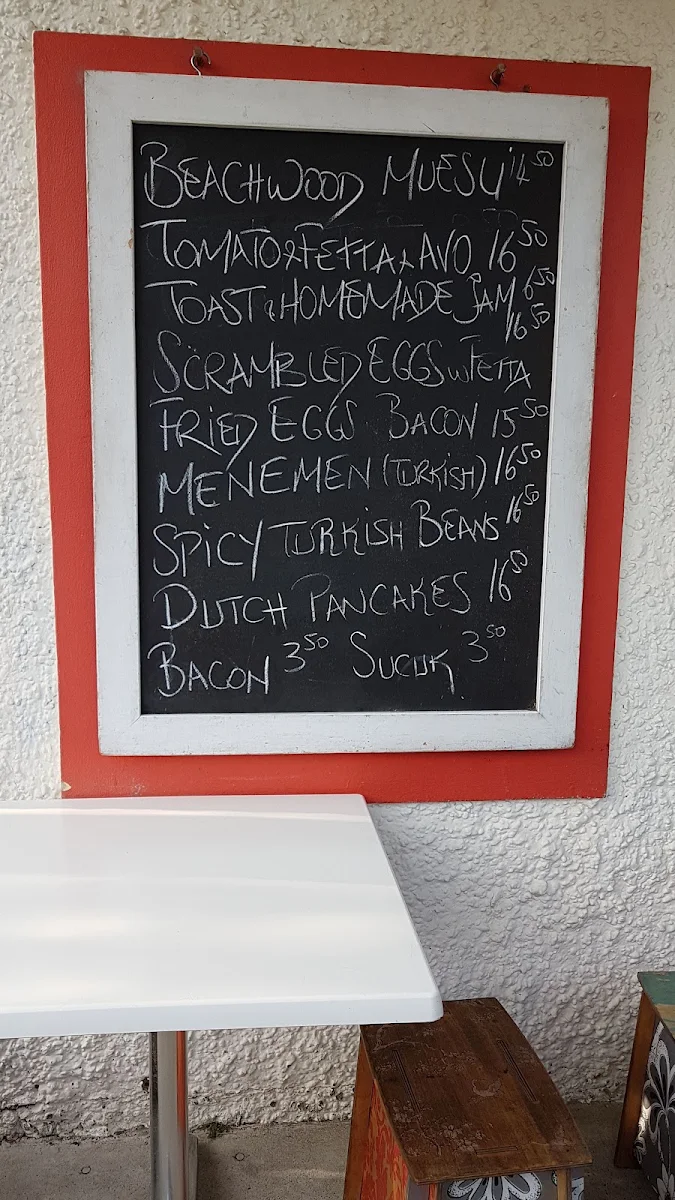 BEACHWOOD MUESLI 14 50
TOMATO & FETTA & AVO 16 50
TOAST & HOMEMADE JAM 6 50
16 50
SCRAMBLED EGGS W FETTA
FRIED EGGS BACON 15 50
MENEMEN (TURKISH) 16 50
SPICY TURKISH BEANS 16 50
DUTCH PANCAKES 16 50
BACON 3 50 SUCUK 3 50